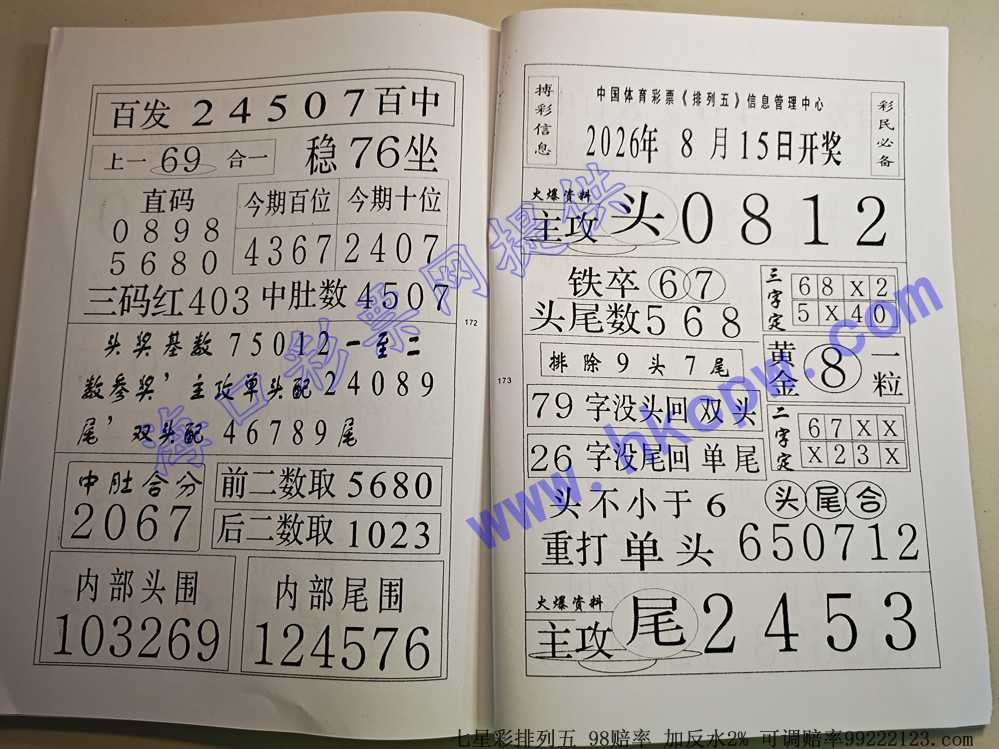 百发 24507 百中
上一 69 合一
稳 76 坐
直码
0898
5680
今期百位
4367
今期十位
2407
三码红 403 中肚数 4507
头奖基数 75012 一至二
数参奖’主攻单头配 24089
尾’双头配 46789 尾
中肚合分
2067
前二数取 5680
后二数取 1023
内部头围
103269
内部尾围
124576
172
搏彩信息
中国体育彩票《排列五》信息管理中心
2026年 8 月 15日开奖
彩民必备
火爆资料
主攻 头 0812
铁卒 67
头尾数 568
三字定
68X2
5X40
排除 9 头 7 尾
黄金 8 一粒
79 字没头回 双 头
26 字没尾回 单 尾
二字定
67XX
X23X
头 不小于 6
头尾合
重打 单 头 650712
火爆资料
主攻 尾 2453
173
海口彩票网提供
www.hkcpw.com
七星彩排列五 98赔率 加反水2% 可调赔率99222123.com